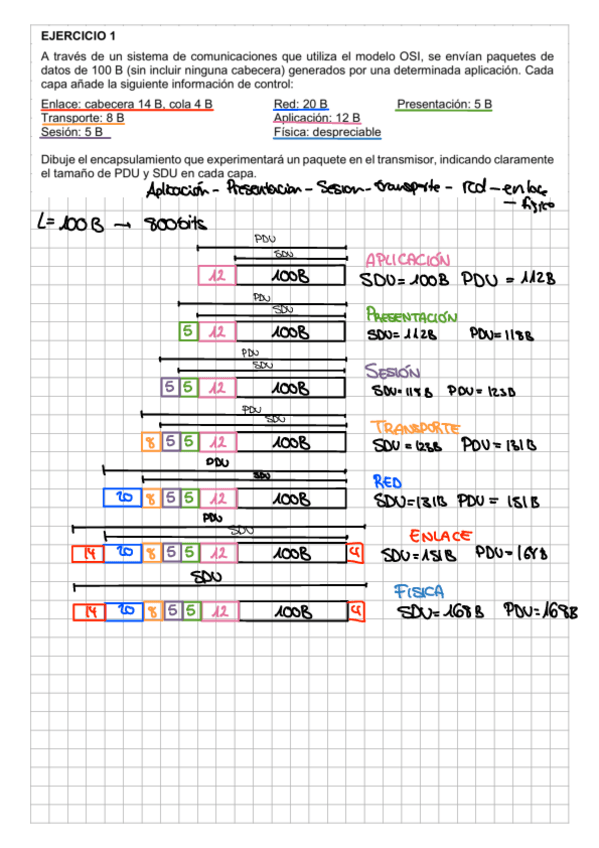 EJERCICIO 1
A través de un sistema de comunicaciones que utiliza el modelo OSI, se envían paquetes de
datos de 100 B (sin incluir ninguna cabecera) generados por una determinada aplicación. Cada
capa añade la siguiente información de control:
Enlace: cabecera 14 B, cola 4 B Red: 20 B Presentación: 5 B
Transporte: 8 B Aplicación: 12 B
Sesión: 5 B Física: despreciable
Dibuje el encapsulamiento que experimentará un paquete en el transmisor, indicando claramente
el tamaño de PDU y SDU en cada capa.
Aplicación - Presentacion - Sesion - transporte - red - enlace
- fisico
L= 100B → 800bits
PDU
SDU
12 100B
APLICACIÓN
SDU= 100B PDU = 112B
PDU
SDU
5 12 100B
PRESENTACIÓN
SDU= 112B PDU= 118B
PDU
SDU
5 5 12 100B
SESIÓN
SDU= 118B PDU = 123B
PDU
SDU
8 5 5 12 100B
TRANSPORTE
SDU = 123B PDU = 131B
PDU
SDU
20 8 5 5 12 100B
RED
SDU=131B PDU = 151B
PDU
SDU
14 20 8 5 5 12 100B 4
ENLACE
SDU=151B PDU= 168B
SDU
14 20 8 5 5 12 100B 4
FISICA
SDU= 168B PDU= 168B